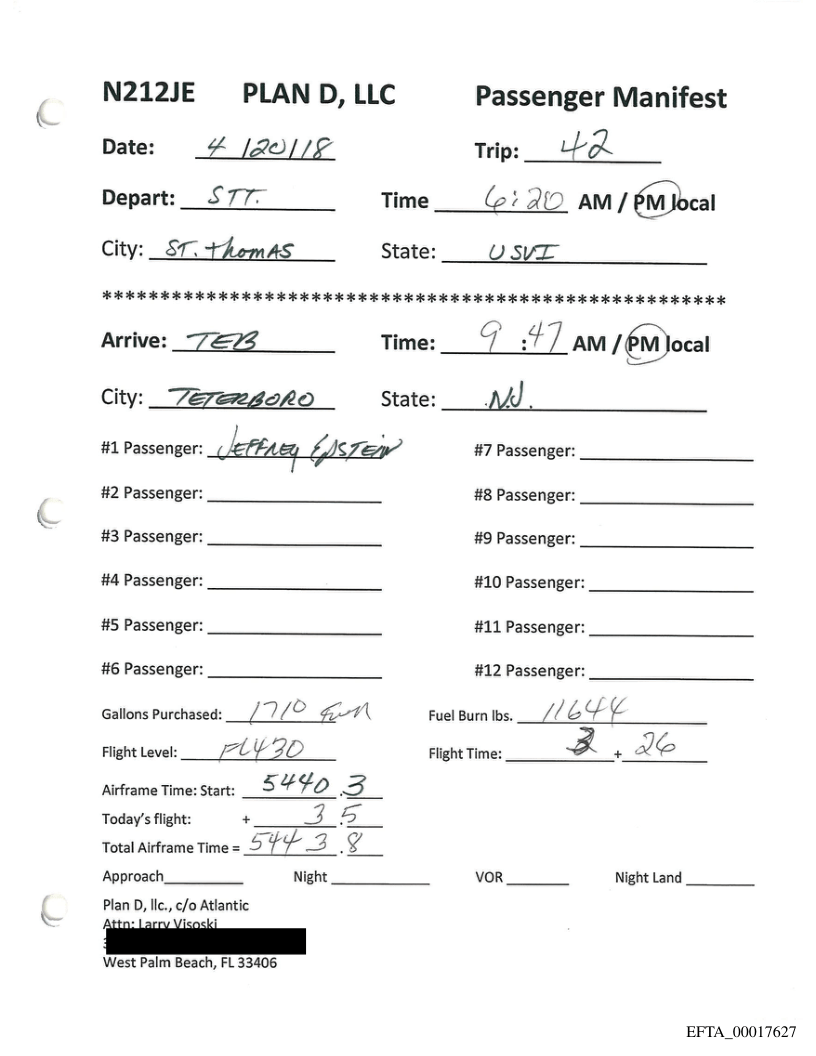 N212JE PLAN D, LLC Passenger Manifest
Date: 4/20/18 Trip: 42
Depart: STT. Time 6:20 AM / PM local
City: ST. thomAS State: USVI
******************************************************
Arrive: TEB Time: 9:47 AM / PM local
City: TETERBORO State: NJ.
#1 Passenger: JEFFREY EPSTEIN #7 Passenger:
#2 Passenger: #8 Passenger:
#3 Passenger: #9 Passenger:
#4 Passenger: #10 Passenger:
#5 Passenger: #11 Passenger:
#6 Passenger: #12 Passenger:
Gallons Purchased: 1710 Fuel Burn lbs. 11644
Flight Level: FL430 Flight Time: 3 + 26
Airframe Time: Start: 5440.3
Today's flight: + 3.5
Total Airframe Time = 5443.8
Approach Night VOR Night Land
Plan D, llc., c/o Atlantic
Attn: Larry Visoski
West Palm Beach, FL 33406
EFTA_00017627